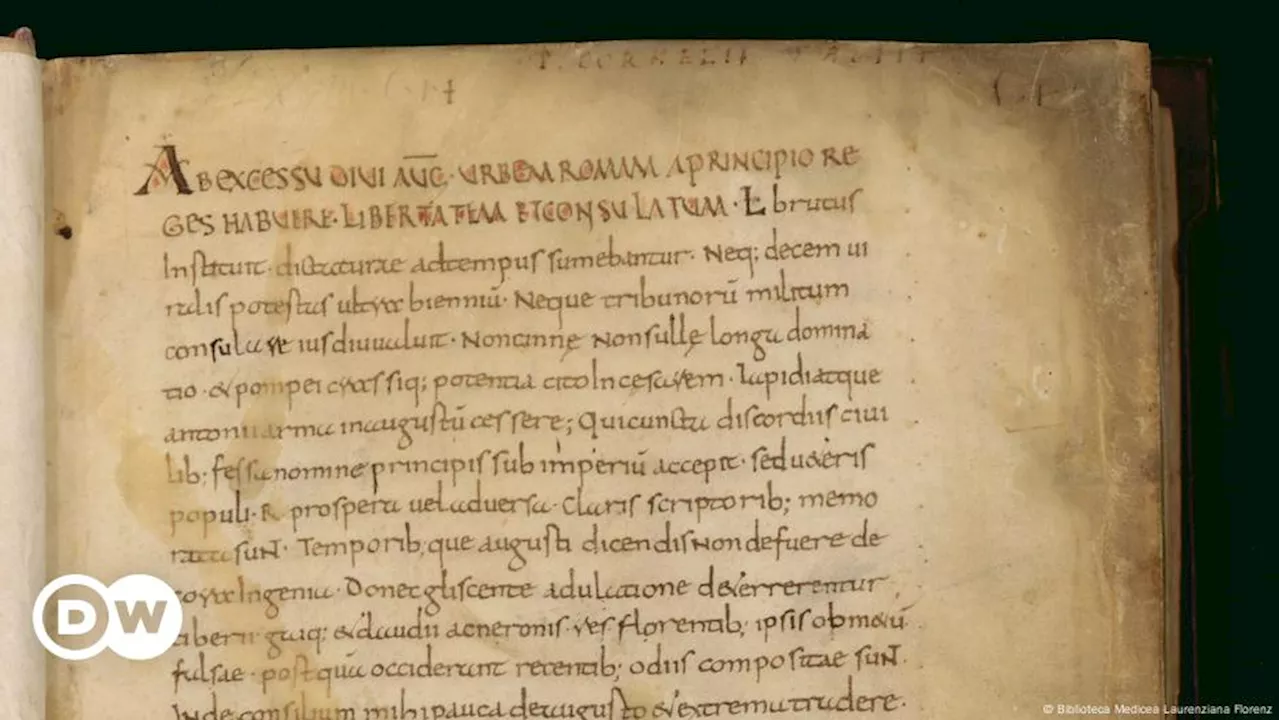 P. CORNELII TACITI
AB EXCESSU DIVI AUG· URBEM ROMAM APRINCIPIO RE
GES HABUERE· LIBERTATEM ETCONSULATUM · L brutus
Instituit· dictaturae adtempus sumebantur· Neq; decem ui
ralis potestas ultra bienniū· Neque tribunorū militum
consulare ius diu ualuit· Noncinnę Nonsullę longa domina
tio· & pompei crassiq; potentia cito Incesarem· lapidiatque
antonii arma inaugustū cessere; Qui cuncta discordiis ciui
lib; fessa nomine principis sub imperiū accepit· sed ueteris
populi· R prospera uel aduersa· Claris scriptorib; memo
rata suNT· Temporib; que augusti dicendis Non defuere de
cora Ingenia· Donec gliscente adulatione deterrerentur
tiberii gaiq; & claudii acneronis· res florentib; ipsis obmetū
falsae· post quā occiderant recentib; odiis compositae suNT·
Inde consilium mihi pauca de augusto & extrema tradere·
DW
© Biblioteca Medicea Laurenziana Florenz